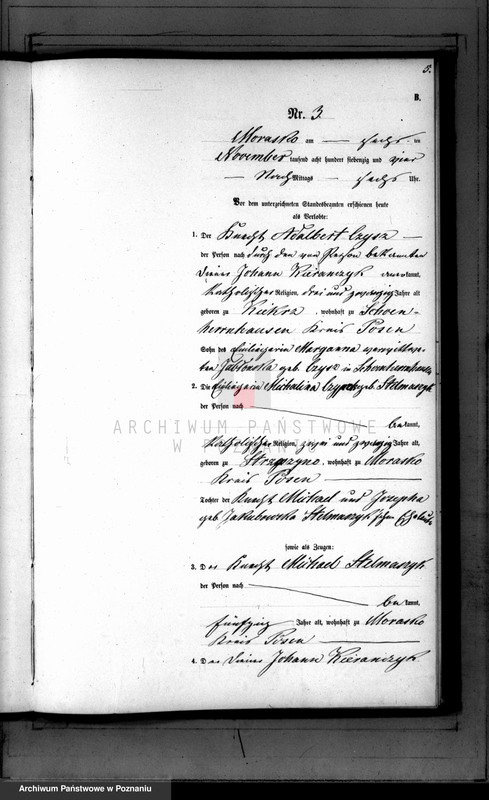 5.
B.
Nr. 3.
Morasko am — sechs ten
November tausend acht hundert siebenzig und vier
— Nachmittags — sechs Uhr.
Vor dem unterzeichneten Standesbeamten erschienen heute
als Verlobte:
1. Der Knecht Adalbert Czysz —
der Person nach durch den von Person bekannten
Johann Kieranczyk anerkannt,
katholischer Religion, drei und zwanzig Jahre alt
geboren zu Kiekrz, wohnhaft zu Schoen-
herrnhausen Kreis Posen
Sohn des Maryanna
geb. Czysz in Schoenherrnhausen
2. Die Michalina geb. Stelmaszyk
der Person nach — bekannt,
katholischer Religion, zwei und zwanzig Jahre alt,
geboren zu Strzeszyno, wohnhaft zu Morasko
Kreis Posen —
Tochter der Knecht Michael und Josepha
geb. Jakubowska Stelmaszyk'schen Eheleute
sowie als Zeugen:
3. Der Knecht Michael Stelmaszyk
der Person nach — bekannt,
fünfzig Jahre alt, wohnhaft zu Morasko
Kreis Posen —
4. Der Johann Kieranczyk
ARCHIWUM PAŃSTWOWE
W POZNANIU
Archiwum Państwowe w Poznaniu